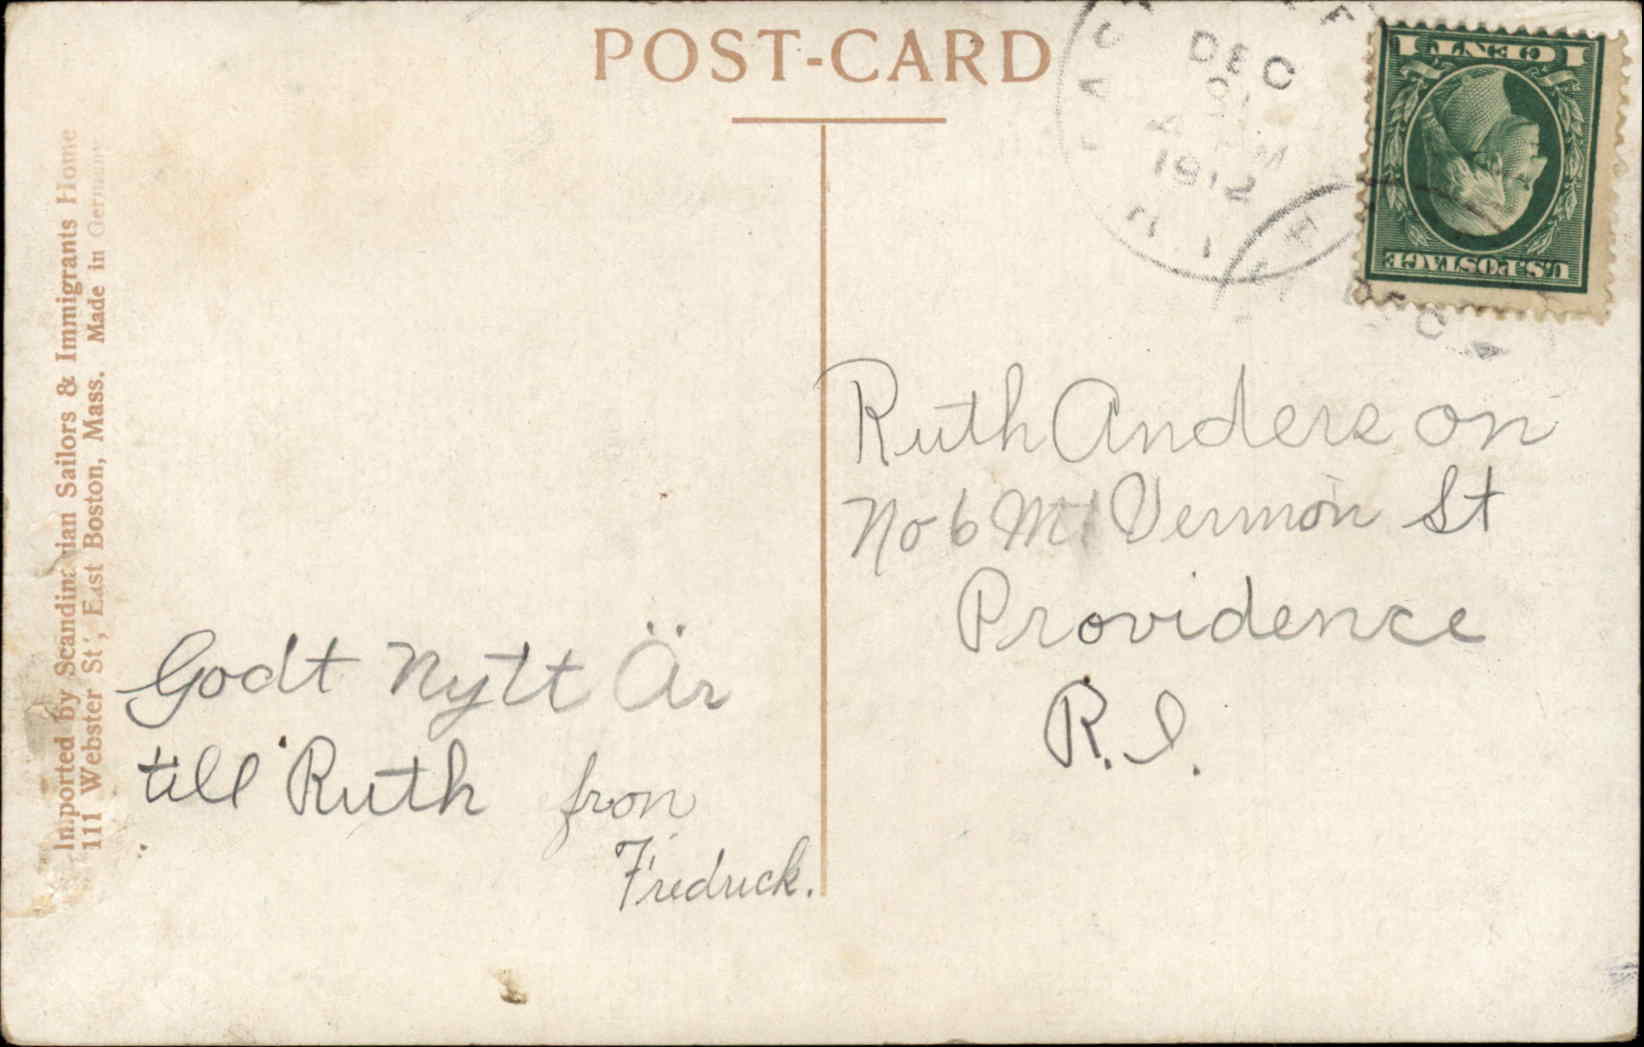 POST-CARD
DEC
1912
1 CENT 1
U.S. POSTAGE
Imported by Scandinavian Sailors & Immigrants Home
111 Webster St., East Boston, Mass. Made in Germany
Ruth Anderson
No 6 Mt Vermon St
Providence
R.I.
Godt Nytt Är
till Ruth fron
Fredrick.